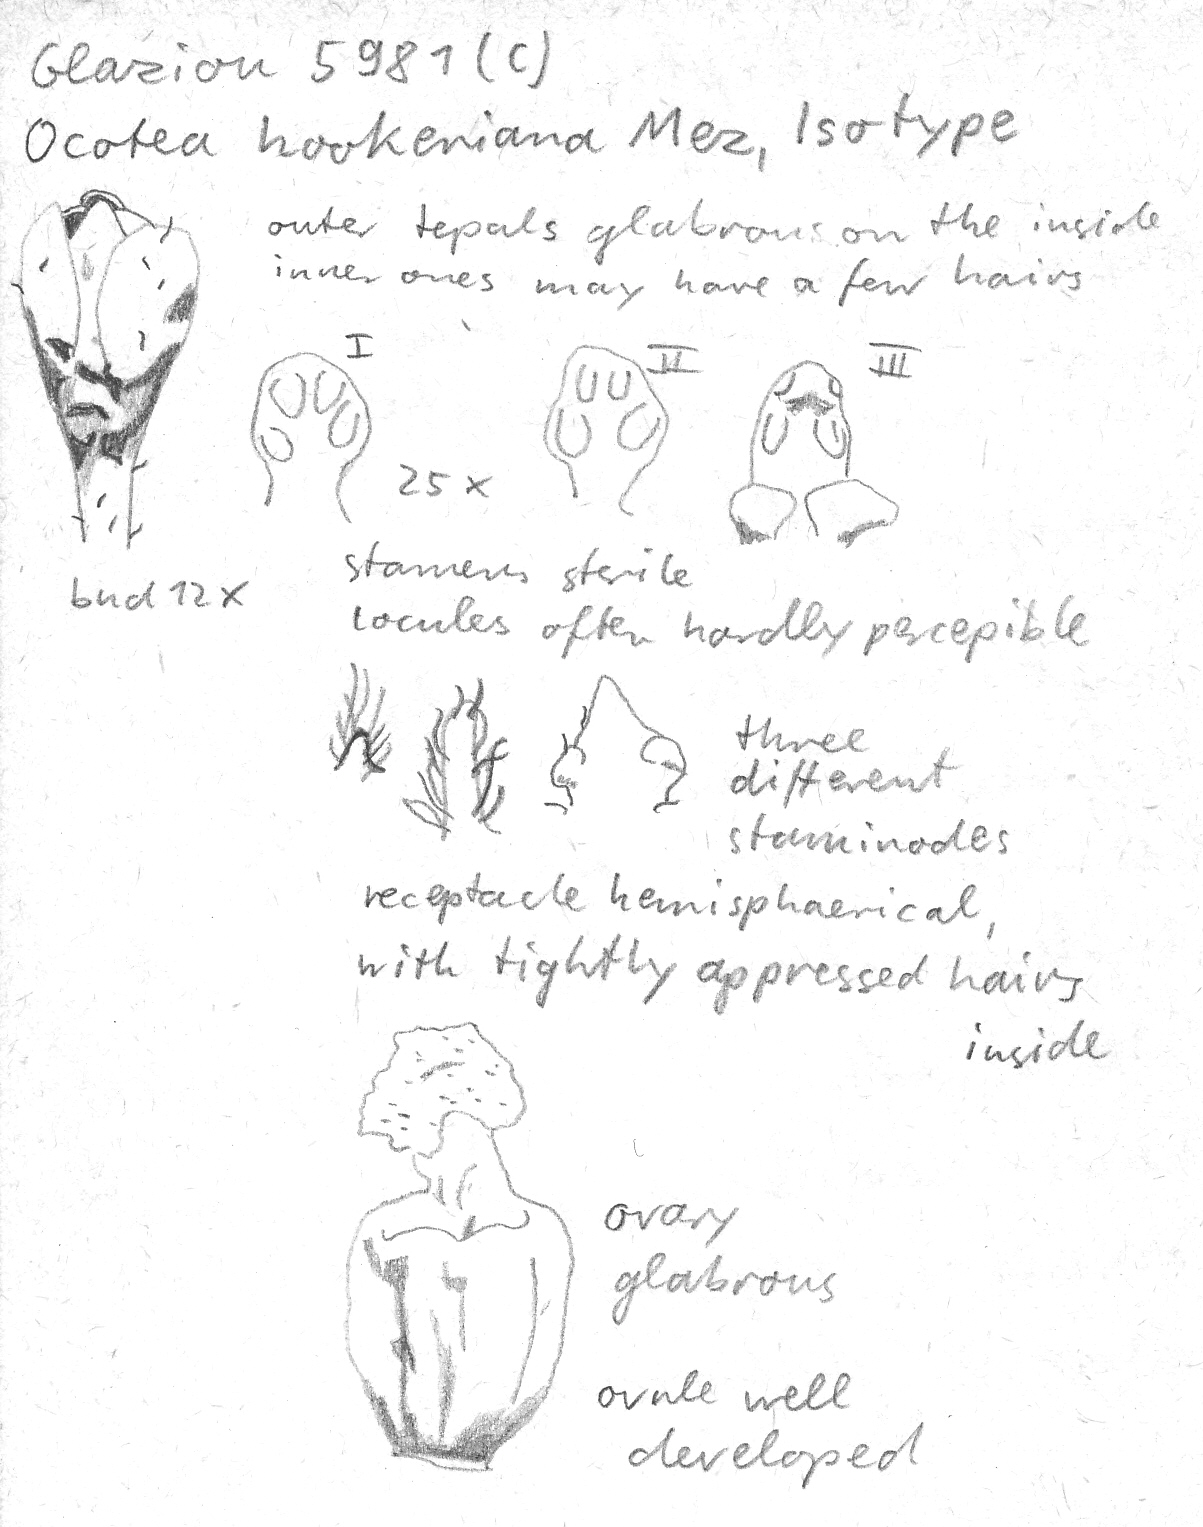 Glaziou 5981 (C)
Ocotea hookeriana Mez, Isotype
outer tepals glabrous on the inside
inner ones may have a few hairs
I
II
III
25 x
bud 12 x
stamens sterile
locules often hardly percepible
three
different
staminodes
receptacle hemisphaerical,
with tightly appressed hairs
inside
ovary
glabrous
ovule well
developed